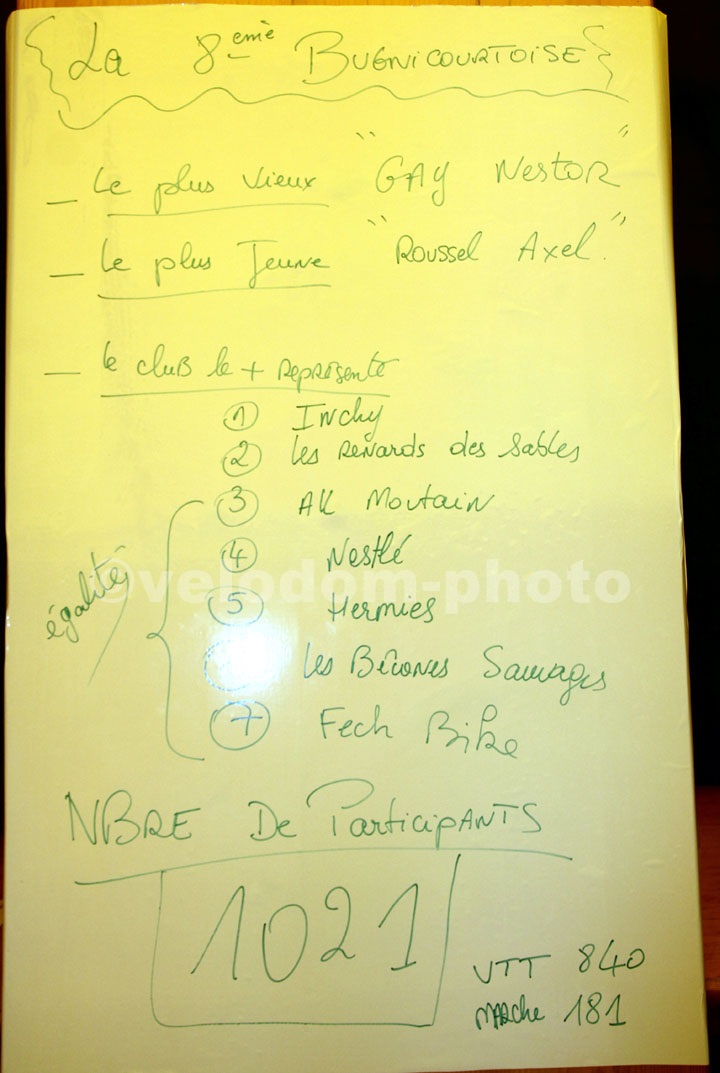 La 8eme BUGNICOURTOISE
_ Le plus vieux "GAY Nestor"
_ Le plus Jeune "Roussel Axel."
_ le cluB le + représenté
① Inchy
② les renards des sables
③ AK Moutain
④ Nestlé
⑤ Hermies
les Bécones Sauvages
⑦ Fech Bike
égalité
©velodom-photo
NBRE De ParticipANTS
1021
VTT 840
MARche 181